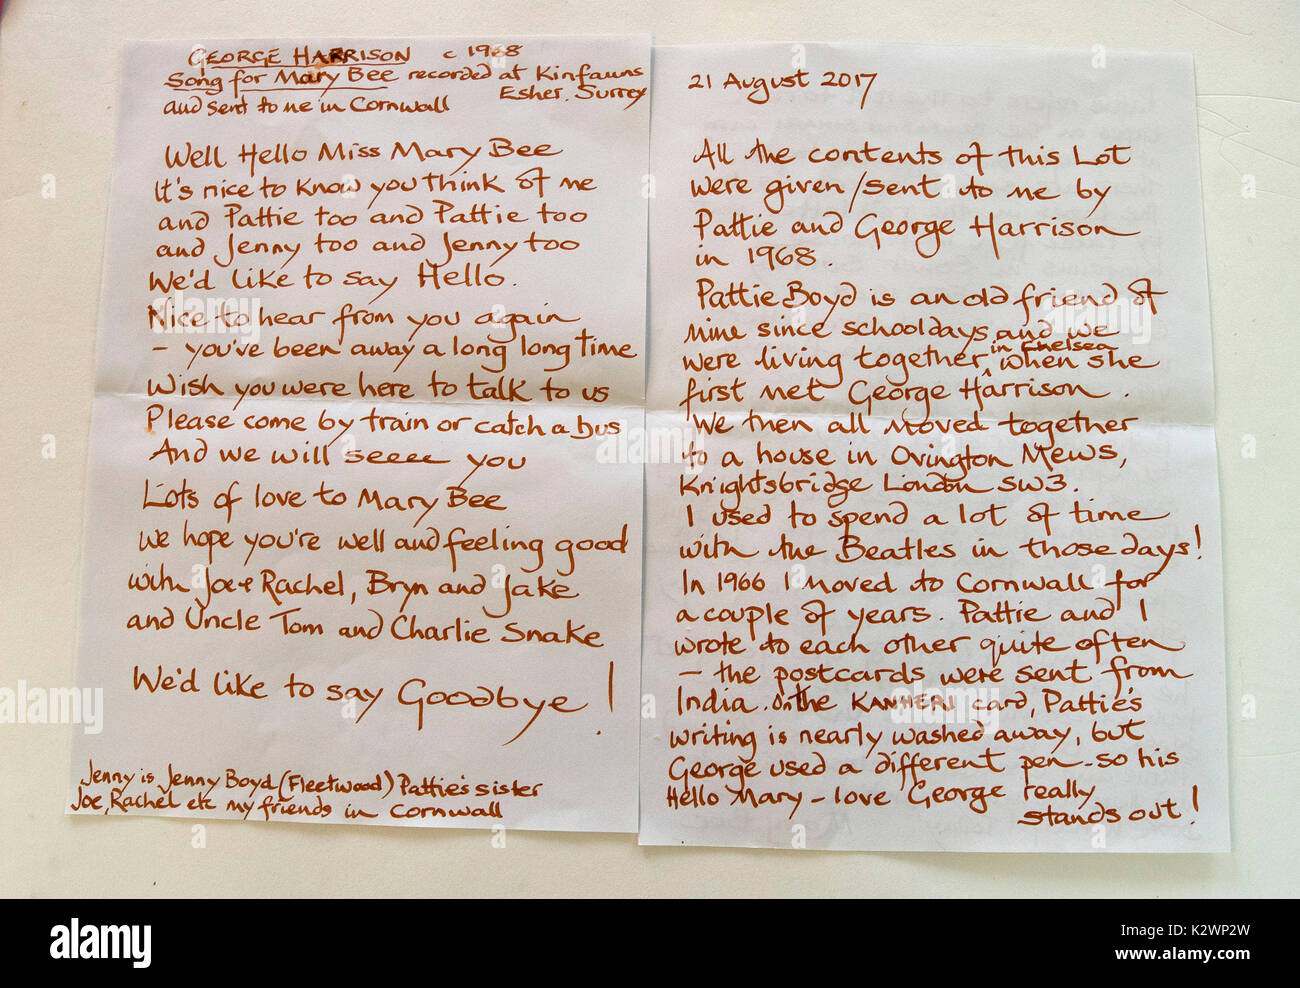 GEORGE HARRISON c 1968
Song for Mary Bee recorded at Kinfauns
Esher. Surrey
and sent to me in Cornwall
Well Hello Miss Mary Bee
It's nice to know you think of me
and Pattie too and Pattie too
and Jenny too and Jenny too
We'd like to say Hello.
Nice to hear from you again
- you've been away a long long time
Wish you were here to talk to us
Please come by train or catch a bus
And we will seeeee you
Lots of love to Mary Bee
We hope you're well and feeling good
with Joe & Rachel, Bryn and Jake
and Uncle Tom and Charlie Snake
We'd like to say Goodbye!
Jenny is Jenny Boyd (Fleetwood) Pattie's sister
Joe, Rachel etc my friends in Cornwall
21 August 2017
All the contents of this Lot
were given/sent to me by
Pattie and George Harrison
in 1968.
Pattie Boyd is an old friend of
mine since schooldays and we
were living together in Chelsea when she
first met George Harrison.
We then all moved together
to a house in Ovington Mews,
Knightsbridge London SW3.
I used to spend a lot of time
with the Beatles in those days!
In 1966 I moved to Cornwall for
a couple of years. Pattie and I
wrote to each other quite often
- the postcards were sent from
India. On the KANHERI card, Pattie's
writing is nearly washed away, but
George used a different pen - so his
Hello Mary - love George really
stands out!
alamy
Image ID: K2WP2W
www.alamy.com